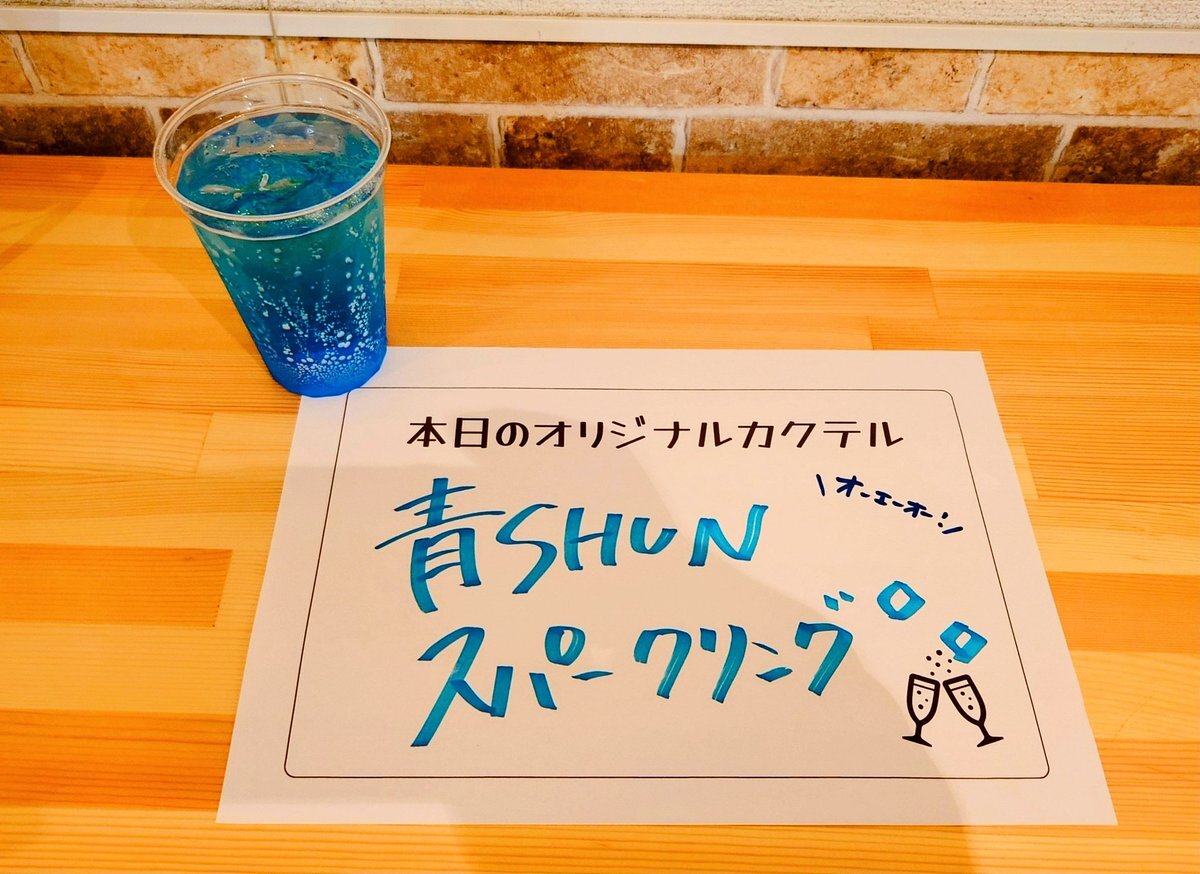 本日のオリジナルカクテル
\オーエーオー!/
青SHUN
スパークリング